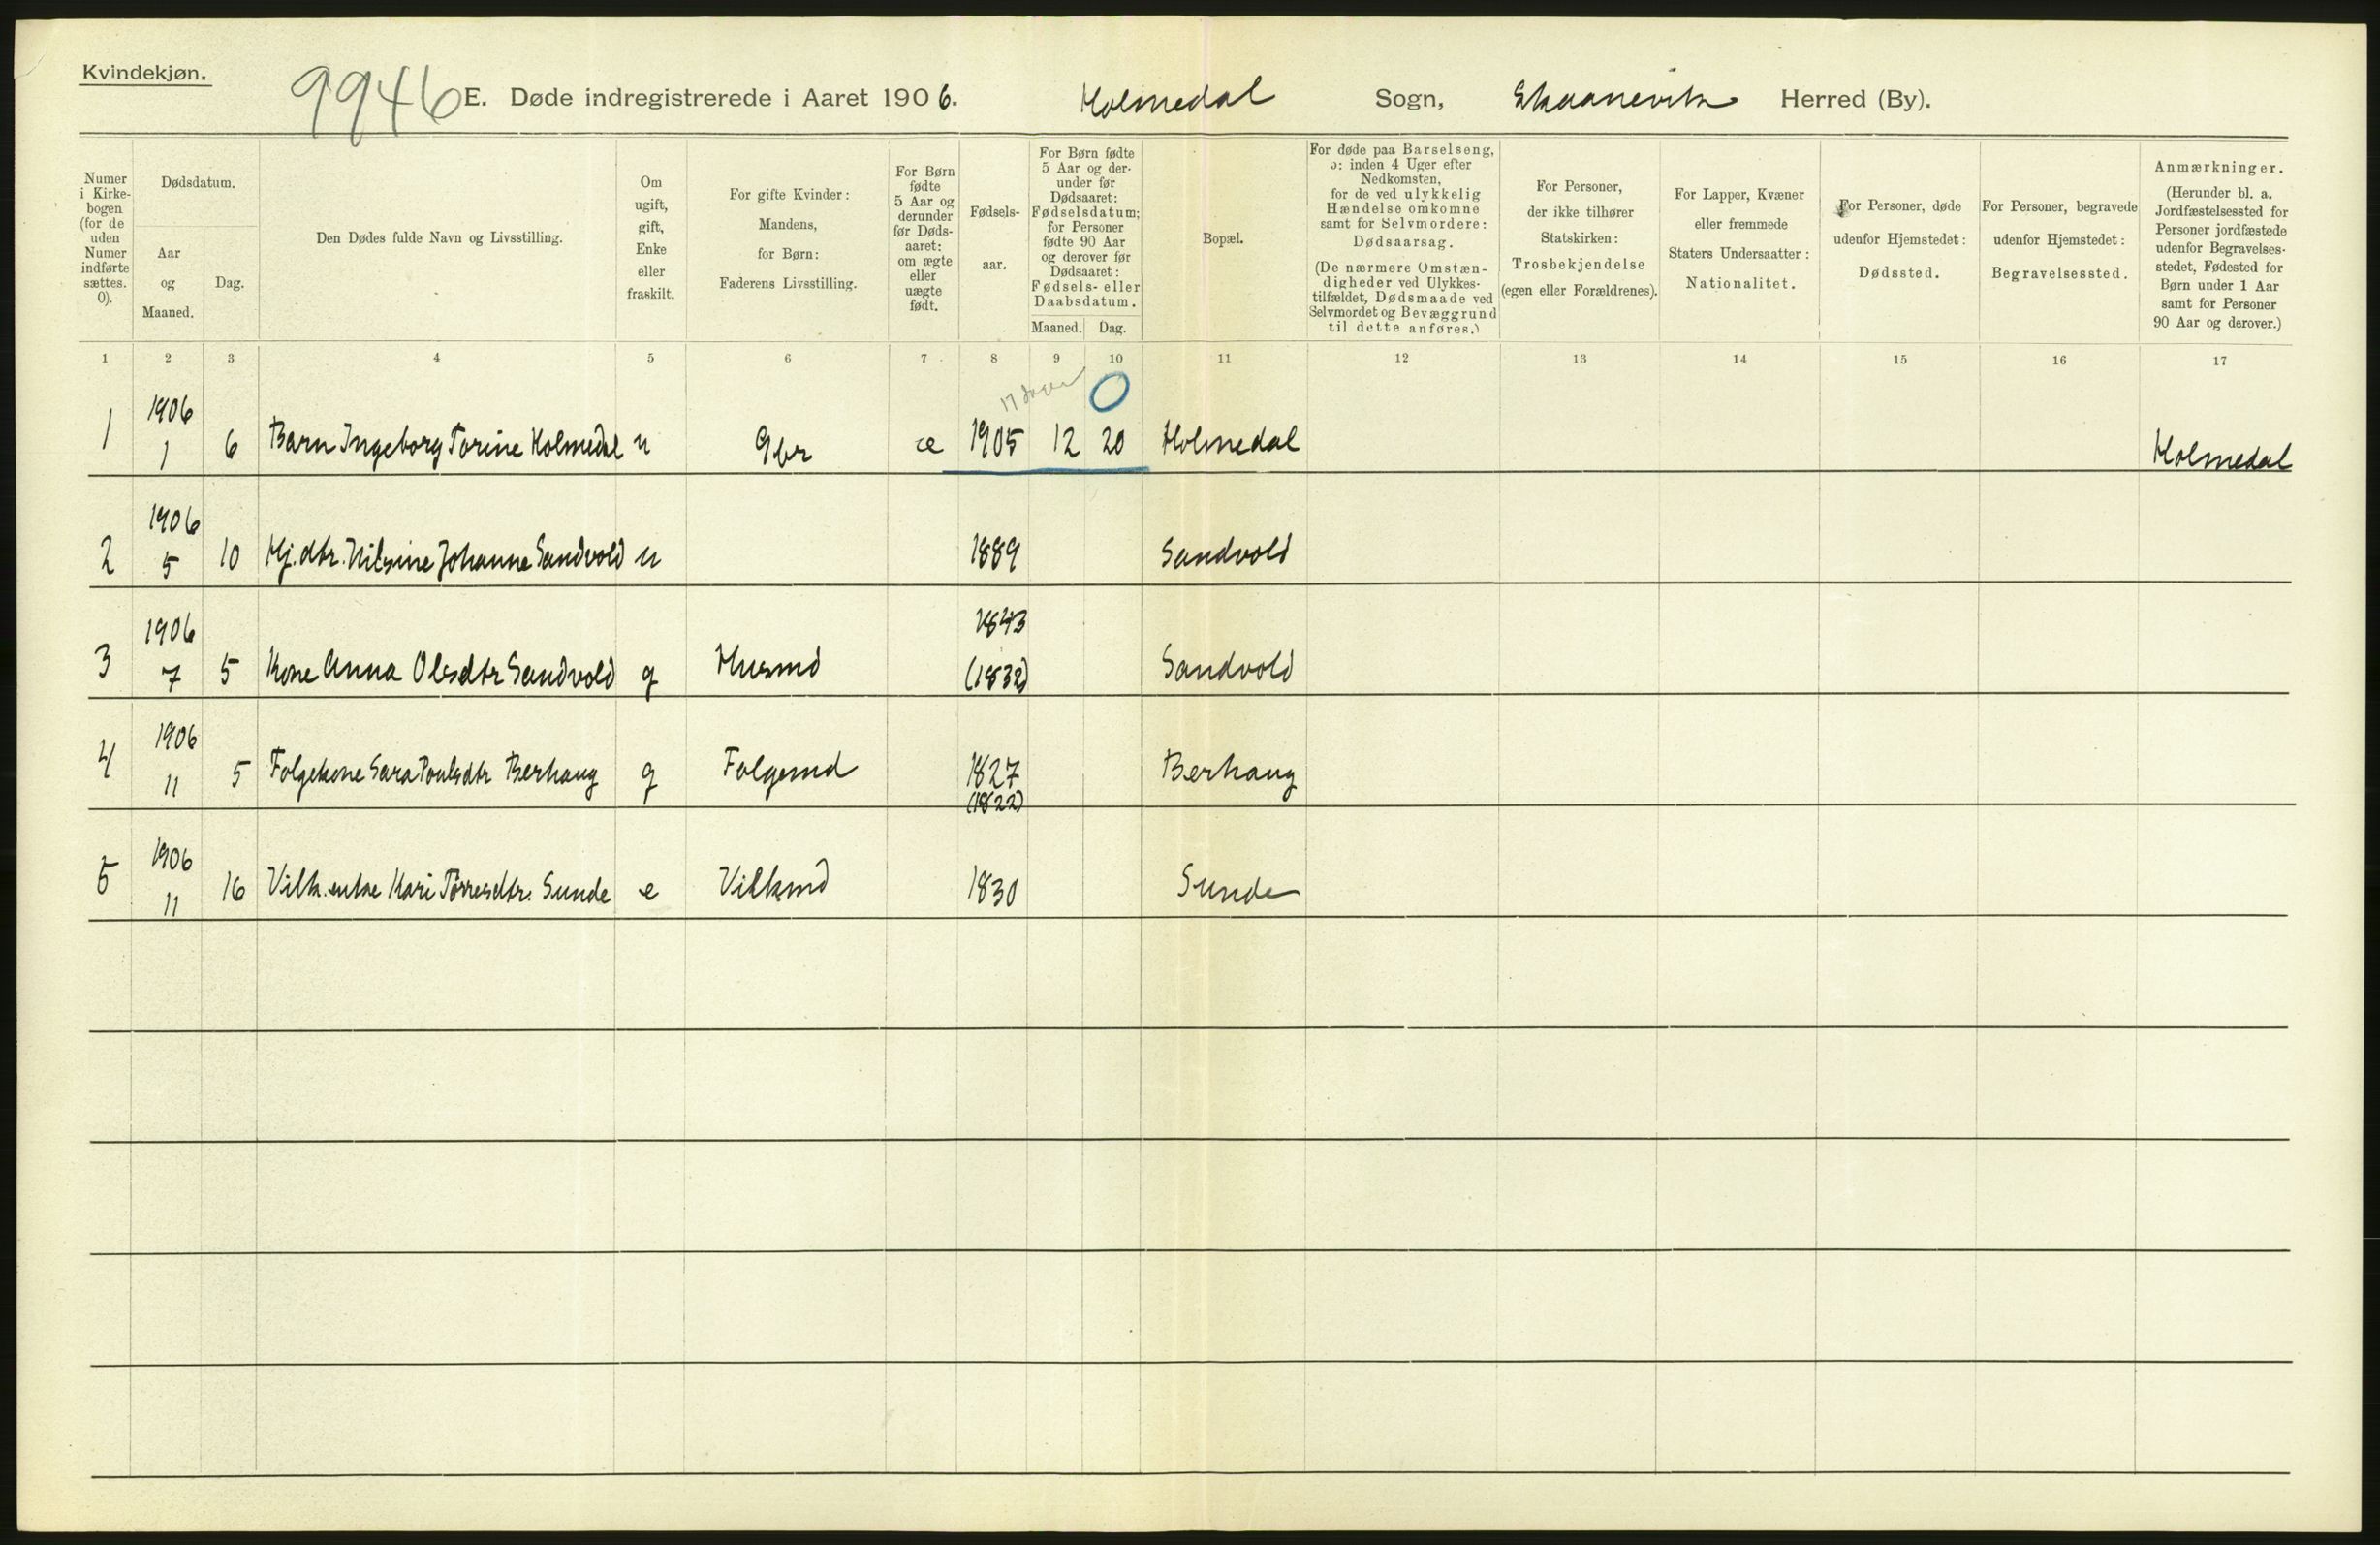 Kvindekjøn.
9946 E. Døde indregistrerede i Aaret 1906. Holmedal Sogn, Skaanevik Herred (By).
Numer i Kirkebogen (for de uden Numer indførte sættes. 0).
Dødsdatum.
Aar og Maaned.
Dag.
Den Dødes fulde Navn og Livsstilling.
Om ugift, gift, Enke eller fraskilt.
For gifte Kvinder: Mandens, for Børn: Faderens Livsstilling.
For Børn fødte 5 Aar og derunder før Dødsaaret: om ægte eller uægte født.
Fødselsaar.
For Børn fødte 5 Aar og derunder før Dødsaaret: Fødselsdatum; for Personer fødte 90 Aar og derover før Dødsaaret: Fødsels- eller Daabsdatum.
Maaned. Dag.
Bopæl.
For døde paa Barselseng, ɔ: inden 4 Uger efter Nedkomsten, for de ved ulykkelig Hændelse omkomne samt for Selvmordere: Dødsaarsag.
(De nærmere Omstændigheder ved Ulykkestilfældet, Dødsmaade ved Selvmordet og Bevæggrund til dette anføres.)
For Personer, der ikke tilhører Statskirken: Trosbekjendelse (egen eller Forældrenes).
For Lapper, Kvæner eller fremmede Staters Undersaatter: Nationalitet.
For Personer, døde udenfor Hjemstedet: Dødssted.
For Personer, begravede udenfor Hjemstedet: Begravelsessted.
Anmærkninger.
(Herunder bl. a. Jordfæstelsessted for Personer jordfæstede udenfor Begravelsesstedet, Fødested for Børn under 1 Aar samt for Personer 90 Aar og derover.)
1 2 3 4 5 6 7 8 9 10 11 12 13 14 15 16 17
17 0
1 1906 1 6 Barn Ingeborg Torine Holmedal u Gbr æ 1905 12 20 Holmedal Holmedal
2 1906 5 10 Hj.dtr. Nilsine Johanne Sandvold u 1889 Sandvold
3 1906 7 5 Kone Anna Olsdtr Sandvold g Husmd 1843 (1832) Sandvold
4 1906 11 5 Folgekone Sara Poulsdtr Berhaug g Folgemd 1827 (1822) Berhaug
5 1906 11 16 Vilk.enke Kari Tørresdtr. Sunde e Vilkmd 1830 Sunde